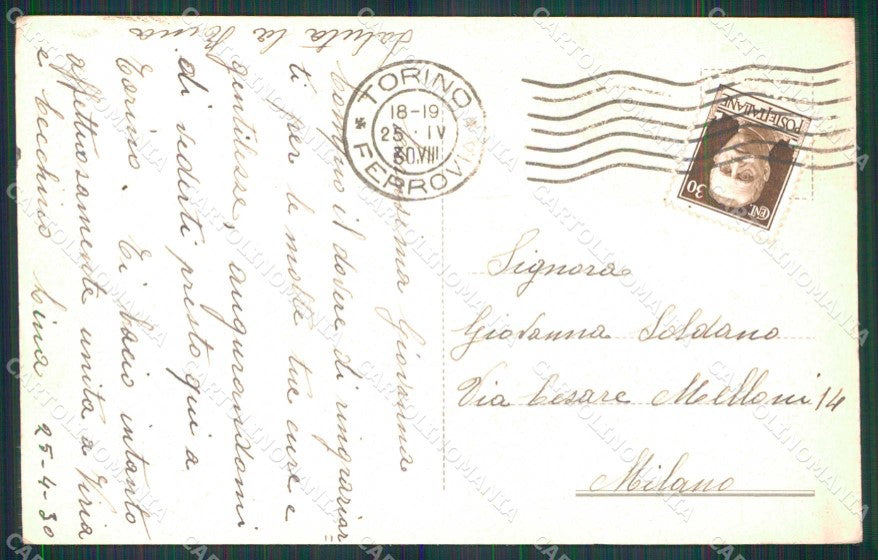 Carissima Giovanna
Compio il dovere di ringraziar=
ti per le molte tue cure e
gentilesse, augurandomi
di vederti presto qui a
Torino. Ti bacio intanto
affettuosamente unita a
e Cecchino Lina 25-4-30
Saluta la
TORINO
18-19
25·IV
30.VIII
FERROVIA
POSTE ITALIANE
CENT 30
Signora
Giovanna Soldano
Via Cesare Melloni 14
Milano
CARTOLINOMANIA